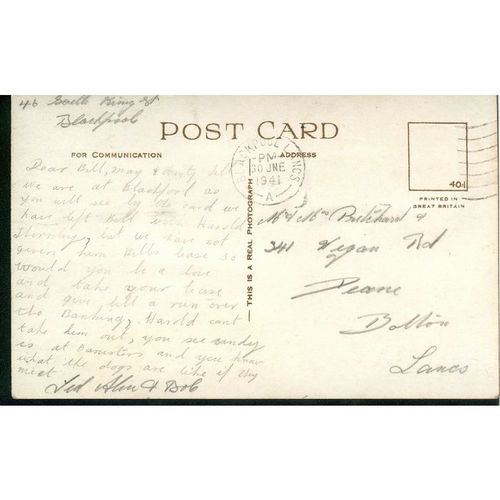 46 South King St
Blackpool
POST CARD
FOR COMMUNICATION
ADDRESS
BLACKPOOL LANCS
PM
30 JNE
1941
A
401
PRINTED IN
GREAT BRITAIN
THIS IS A REAL PHOTOGRAPH
Dear Bill, May &
we are at Blackpool as
you will see by card we
have left Bill Harold
but we have not
given him Bills lease so
would you be a love
and take your lease
and give Bill a run over
the Banking, Harold cant
take him out, you see sandy
is at Banisters and you know
what the dogs are like if they
meet
Ted & Bob
Mr & Mrs Pritchard &
341 Wigan Rd
Deane
Bolton
Lancs